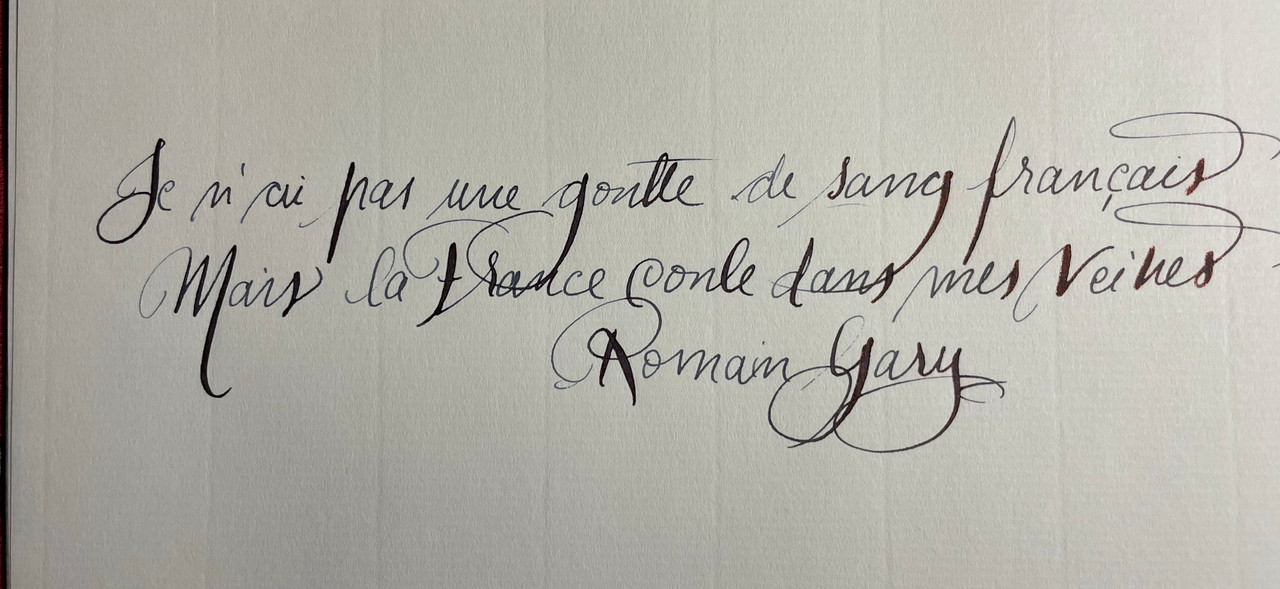 Je n'ai pas une goutte de sang français
Mais la France coule dans mes Veines
Romain Gary